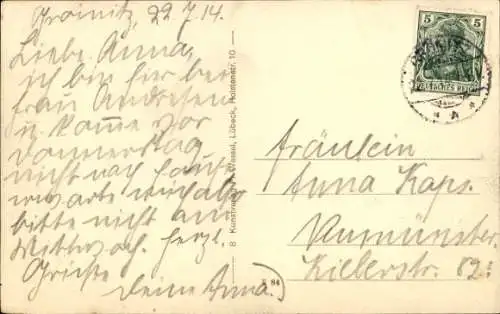 Grömitz, 22.7.14.
Liebe Anna,
ich bin hier bei
Frau Andresen
u. komme vor
Donnerstag
nicht nach Haus
erwarte mich also
bitte nicht am
Mittwoch. Herzl.
Grüße
Deine Anna.
8 Kunstverlag Wessel, Lübeck, Holstenstr. 10
84
5 5
DEUTSCHES REICH
Fräulein
Anna Kaps.
Neumünster
Kielerstr. 82.